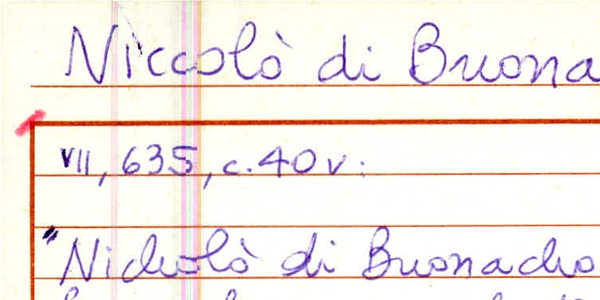 Niccolò di Buona
VII, 635, c. 40v:
"Nicholò di Buonacho